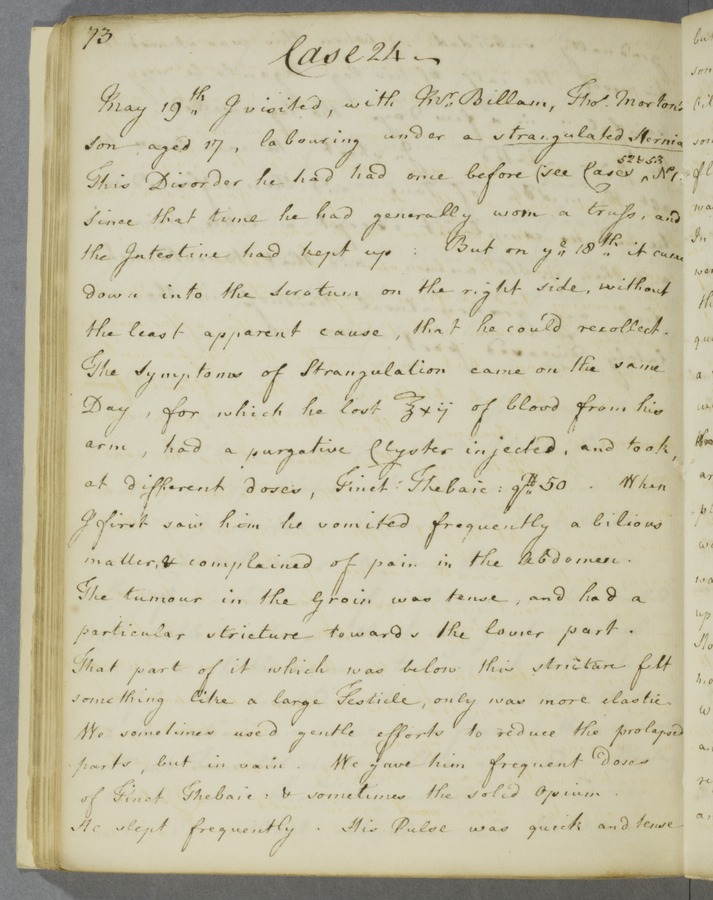 73
Case 24
May 19th I visited, with Mr. Billam, Thos. Morton's
son aged 17, labouring under a strangulated Hernia
This Disorder he had had once before (see Cases 52 & 53, No. 1.
Since that time he had generally worn a truss, and
the Intestine had kept up : But on ye 18th it came
down into the Scrotum on the right side, without
the least apparent cause, that he could recollect.
The Symptoms of Strangulation came on the same
Day, for which he lost ℥xij of blood from his
arm, had a purgative Clyster injected, and took,
at different doses, Tinct: Thebaic: gtt 50. When
I first saw him he vomited frequently a bilious
matter, & complained of pain in the Abdomen.
The tumour in the Groin was tense, and had a
particular stricture towards the lower part.
That part of it which was below this stricture felt
something like a large Testicle, only was more elastic
We sometimes used gentle efforts to reduce the prolapsed
parts, but in vain. We gave him frequent Doses
of Tinct Thebaic: & sometimes the solid Opium.
He slept frequently. His Pulse was quick and tense